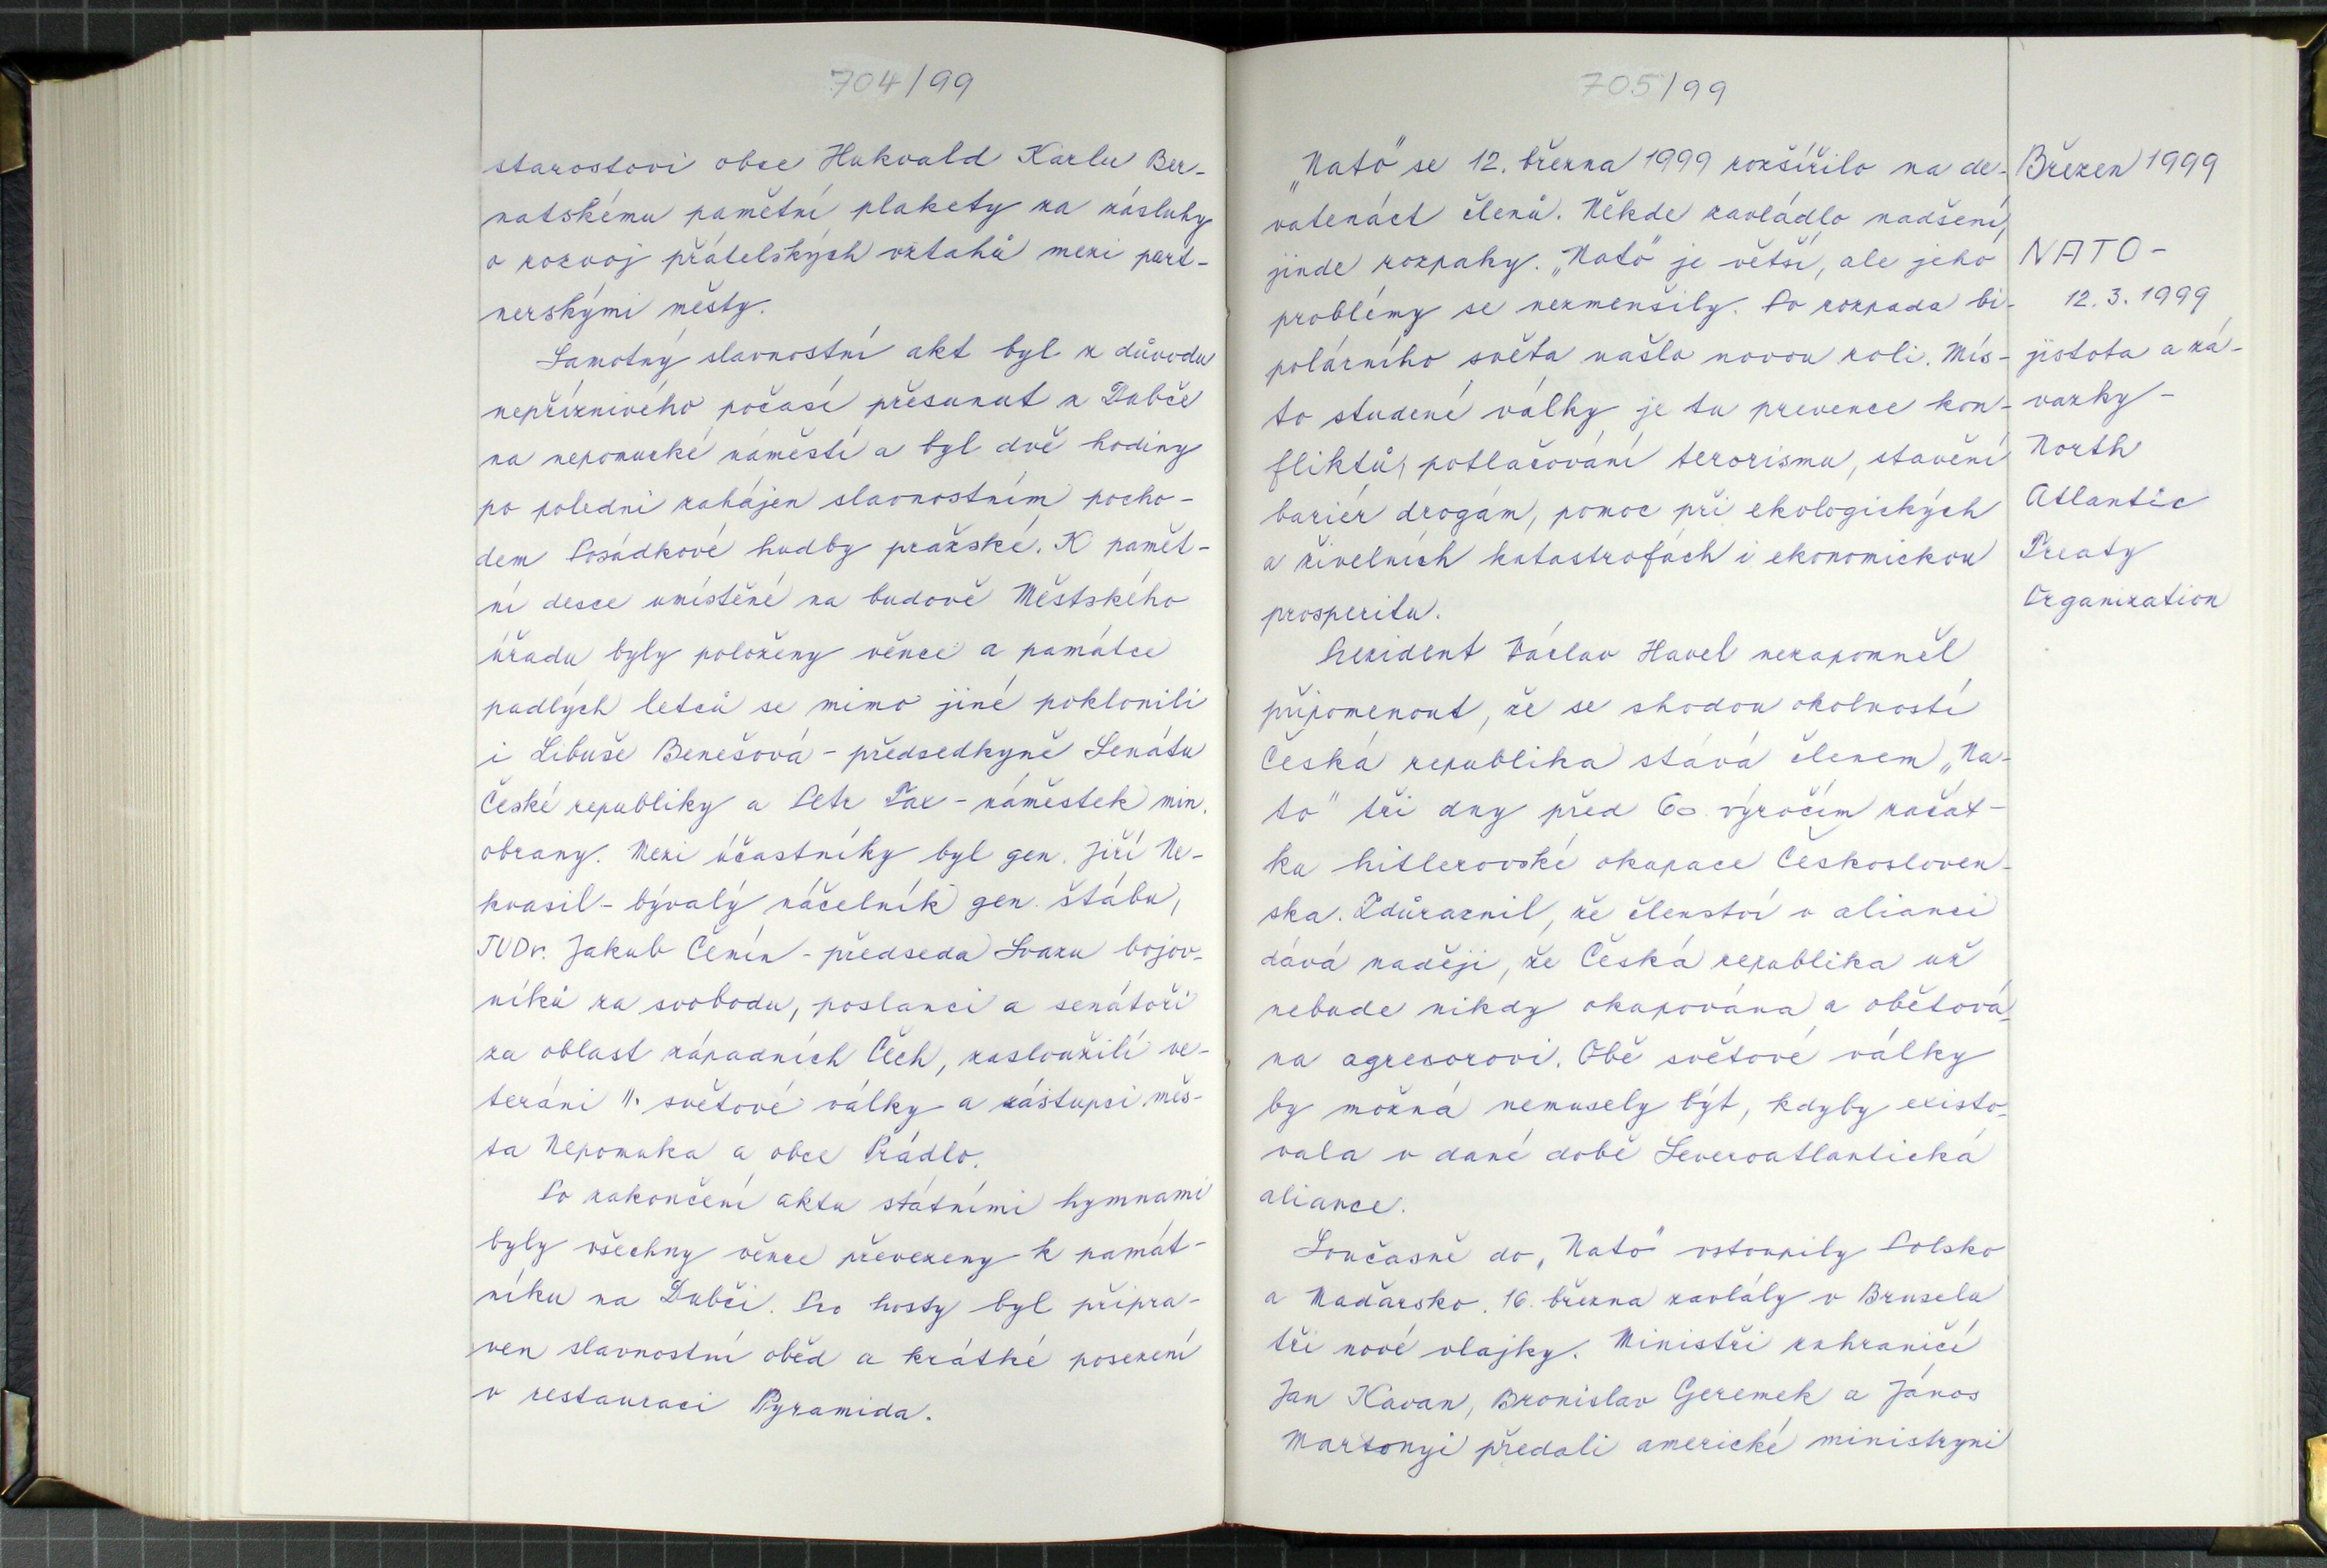 704/99
starostovi obce Hukvald Karlu Ber-
natskému pamětní plakety za zásluhy
o rozvoj přátelských vztahů mezi part-
nerskými městy.
Samotný slavnostní akt byl z důvodu
nepříznivého počasí přesunut z Dubče
na nepomucké náměstí a byl dvě hodiny
po poledni zahájen slavnostním pocho-
dem Posádkové hudby pražské. K pamět-
ní desce umístěné na budově Městského
úřadu byly položeny věnce a památce
padlých letců se mimo jiné poklonili
i Libuše Benešová - předsedkyně Senátu
České republiky a Petr Tax - náměstek min.
obrany. Mezi účastníky byl gen. Jiří Ne-
kvasil - bývalý náčelník gen. štábu,
JUDr. Jakub Čenín - předseda Svazu bojov-
níků za svobodu, poslanci a senátoři
za oblast západních Čech, zasloužilí ve-
teráni II. světové války a zástupci měs-
ta Nepomuka a obce Prádlo.
Po zakončení aktu státními hymnami
byly všechny věnce převezeny k památ-
níku na Dubči. Pro hosty byl připra-
ven slavnostní oběd a krátké posezení
v restauraci Pyramida.
705/99
„Nato" se 12. března 1999 rozšířilo na de-
vatenáct členů. Někde zavládlo nadšení,
jinde rozpaky. „Nato" je větší, ale jeho
problémy se nezmenšily. Po rozpadu bi-
polárního světa našlo novou roli. Mís-
to studené války je tu prevence kon-
fliktů, potlačování terorismu, stavění
bariér drogám, pomoc při ekologických
a živelních katastrofách i ekonomickou
prosperitu.
Prezident Václav Havel nezapomněl
připomenout, že se shodou okolností
Česká republika stává členem „Na-
to" tři dny před 60. výročím začát-
ku hitlerovské okupace Českosloven-
ska. Zdůraznil, že členství v alianci
dává naději, že Česká republika už
nebude nikdy okupována a obětová-
na agresorovi. Obě světové války
by možná nemusely být, kdyby existo-
vala v dané době Severoatlantická
aliance.
Současně do „Nato" vstoupily Polsko
a Maďarsko. 16. března zavlály v Bruselu
tři nové vlajky. Ministři zahraničí
Jan Kavan, Bronislav Geremek a János
Martonyi předali americké ministryni
Březen 1999
NATO -
12. 3. 1999
jistota a zá-
vazky -
North
Atlantic
Treaty
Organization